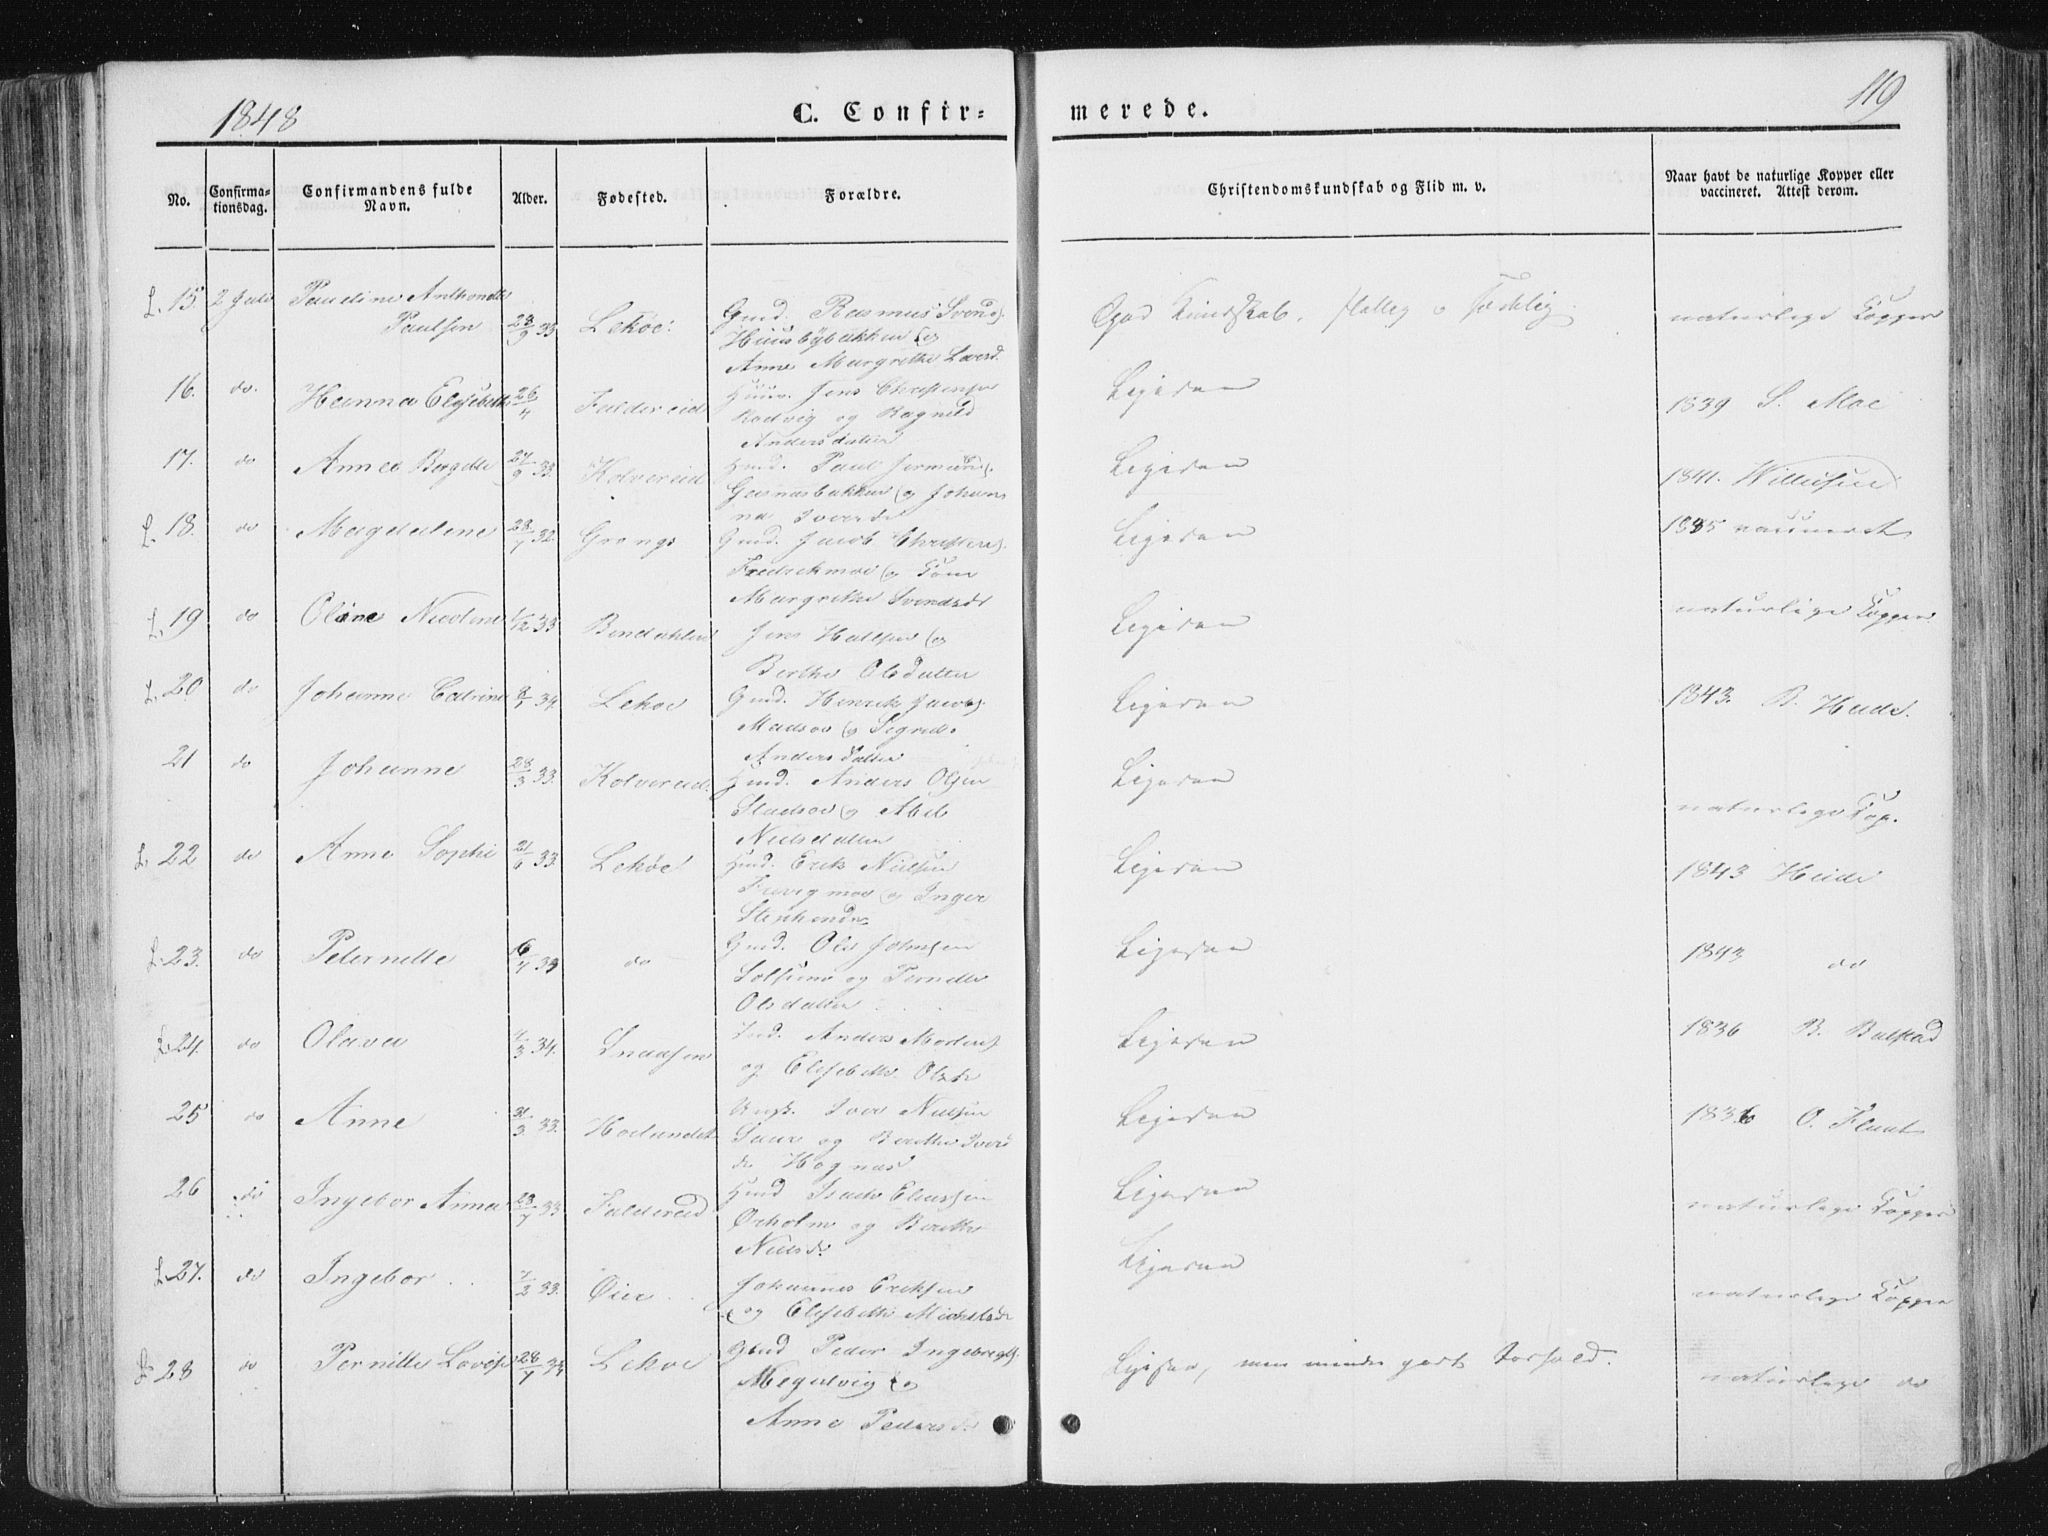 1848
C. Confir-
merede.
119
No.
Confirma-
tionsdag.
Confirmandens fulde
Navn.
Alder.
Fødested.
Forældre.
Christendomskundskab og Flid m. v.
Naar havt de naturlige Kopper eller
vaccineret. Attest derom.
L. 15. 2 Juli Pauline Anthonette
Paulsen 28/9 33 Lekøe. Gmd. Rasmus Svends.
Huusbybakken og
Anne Margrethe Larsd.
God Kundskab, flittig og sædelig. naturlige Kopper
16. do. Hanna Elisabeth 26/4 Foldereid Huusm. Jens Christensen
Rodvig og Ragnild
Andersdatter
Ligesaa 1839 S. Moe
17. do Anne Bergitte 27/9 33. Kolvereid Gmd. Paul
og Johan
na Iversdr
Ligesaa 1841. Willensen
L. 18. do Magdalene 28/1 32. Grong Gmd. Jacob Christens.
Fredrekmoe og Tone
Margrethe Svendsdr
Ligesaa 1835 vaccineret
L. 19 do Oline Nicoline 1/12 33 Bindahlen Jens Halsen og
Berthe Olsdatter
Ligesaa naturlige Kopper
L. 20 do Johanne Catrine 8/1 34. Lekøe Gmd. Henrik Jacobs.
Madsøe og Segred
Andersdatter
Ligesaa 1843. B. Heide.
21 do Johanne 28/3 33. Kolvereid. Gmd. Anders Olsen
og Abel
Nielsdatter
Ligesaa naturlige Kop.
L. 22 do Anne Sophi 21/6 33. Lekøe Gmd. Erik Nielsen
og Inger
Ligesaa 1843 Heide
L. 23. do Peternelle 16/4 33 do Gmd. Ole Johnsen
Solsem og Pernelle
Olsdatter
Ligesaa 1843 do
L. 24. do Olava 4/3 34. Snaasen Anders
og Elisabeth Olsdr
Ligesaa 1836 B. Bulstad
25 do Anne 31/3 33. Iver Nielsen
og Berethe Ivers
dr
Ligesaa 1836 O. Flaat
26 do Ingebor Anna 23/7 33 Foldereid Gmd Isach Eliassen
Ørholm og Berethe
Nielsdr.
Ligesaa naturlige Kopper
L. 27. do Ingebor 7/2 33. Øie Johannes Eriksen
og Elisabeth Mickelsdr
Ligesaa naturlige Kopper
L 28 do Pernille Lovise 28/7 33 Lekøe Gmd Peder Ingebregts.
og
Anne Pedersdr
Ligesaa, men mindre godt Forhold. naturlige do